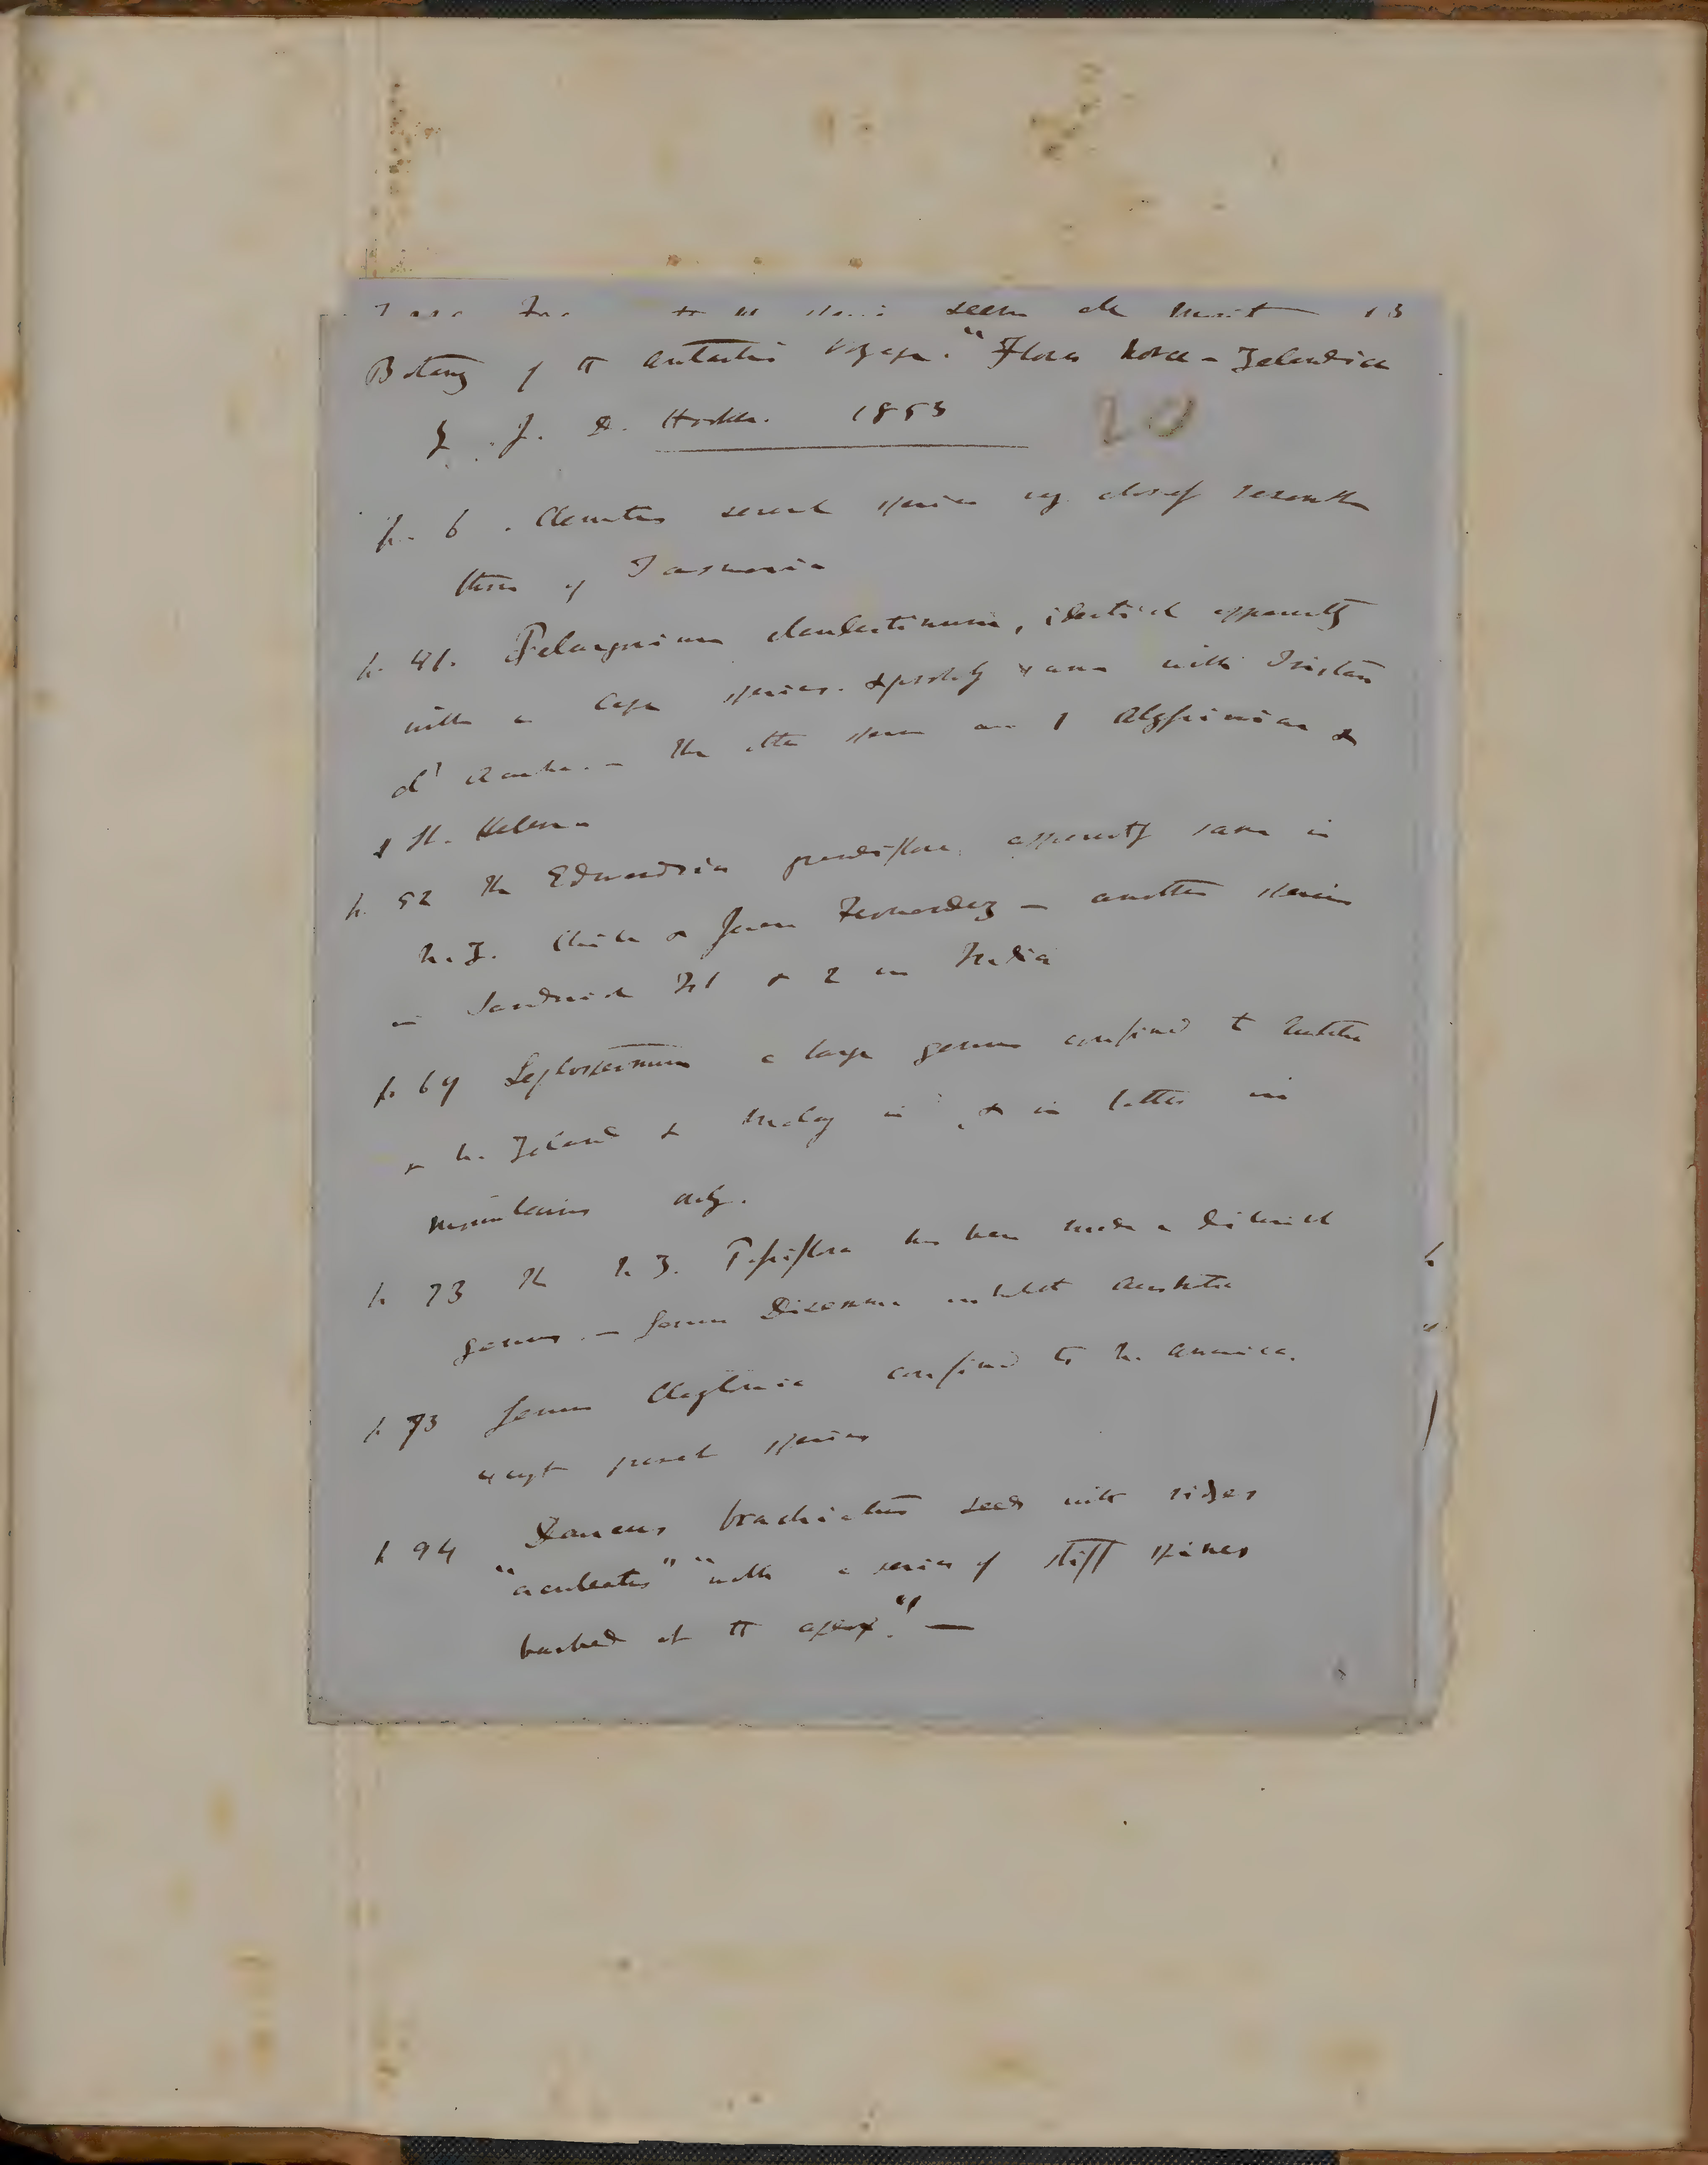 seem
Botany of the Antarctic Voyage. "Flora Novæ-Zelandiæ
by J. D. Hooker. 1853
20
p. 6. Clematis several species very closely resemble
those of Tasmania
p. 41. Pelargonium clandestinum, identical apparently
with a Cape species. & probably same with Tristan
d' Acunha. - The other species are 1 Abyssinian &
1 St. Helena
p. 52 The Edwardsia grandiflora, apparently same in
N. Z. Chile & Juan Fernandez — another species
in Sandwich Isd & 2 in India
p. 69 Leptospermum a large genus confined to Australia
& N. Zeland & Malay is & in latter in
mountains only.
p. 73 The N. Z. Passiflora has been made a distinct
genus. — Genus Disemma inhabit Australia
p. 73 Genus Claytonia confined to N. America.
except present species
p 94 Daucus brachiatus seeds with ridges
"aculeatis" "with a series of stiff spines
barbed at the apex." —